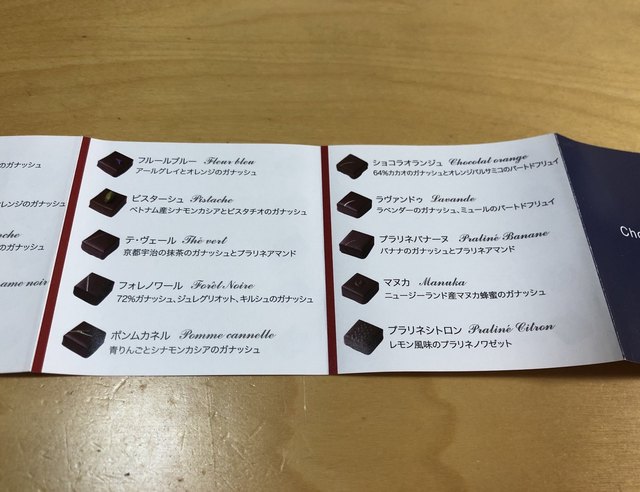 のガナッシュ
レンジのガナッシュ
che
のガナッシュ
ame noir
フルールブルー Fleur bleu
アールグレイとオレンジのガナッシュ
ピスターシュ Pistache
ベトナム産シナモンカシアとピスタチオのガナッシュ
テ・ヴェール Thé vert
京都宇治の抹茶のガナッシュとプラリネアマンド
フォレノワール Forêt Noire
72%ガナッシュ、ジュレグリオット、キルシュのガナッシュ
ポンムカネル Pomme cannelle
青りんごとシナモンカシアのガナッシュ
ショコラオランジュ Chocolat orange
64%カカオのガナッシュとオレンジバルサミコのパートドフリュイ
ラヴァンドゥ Lavande
ラベンダーのガナッシュ、ミュールのパートドフリュイ
プラリネバナーヌ Praliné Banane
バナナのガナッシュとプラリネアマンド
マヌカ Manuka
ニュージーランド産マヌカ蜂蜜のガナッシュ
プラリネシトロン Praliné Citron
レモン風味のプラリネノワゼット
Cho